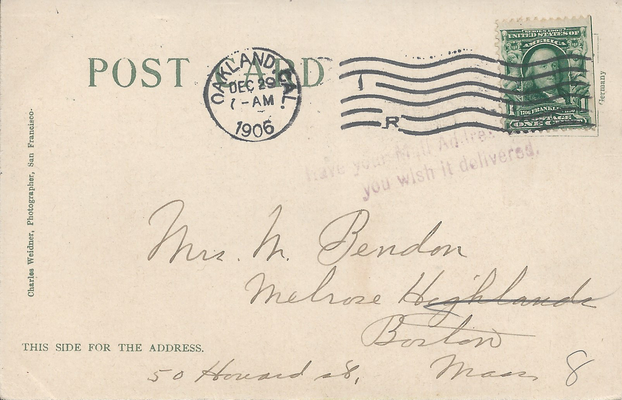 POST CARD
OAKLAND, CAL.
DEC 29
7-AM
1906
1
R
SERIES 1902
UNITED STATES OF
FRANKLIN
POSTAGE
ONE C
Germany
Have your Mail Addre
you wish it delivered.
Charles Weidner, Photographer, San Francisco.
Mrs. M. Bendon
Melrose Highlands
Boston
THIS SIDE FOR THE ADDRESS.
50 Howard st, Mass 8